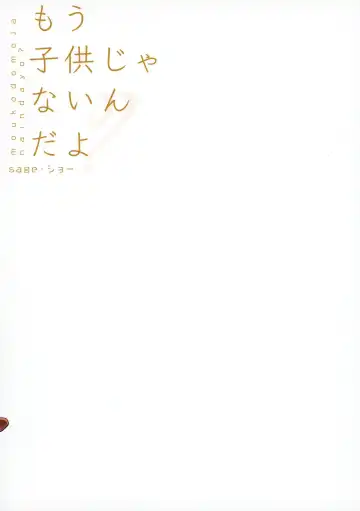 もう
子供じゃ
ないん
だよ
sage・ジョー